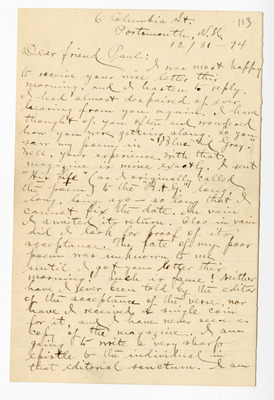 113
6 Columbia St.
Portsmouth, N.H.
12/31-94
Dear friend Paul:
I was most happy
to receive your nice letter this
morning, and I hasten to reply.
I had almost despaired of ever
hearing from you again. I have
thought of you often and wondered
how you were getting along. So you
saw my poem in "Blue and Gray."
Well, your experience with that
magazine is mine exactly. I sent
"His Wife" (as I originally called
the poem) to the "B. & G." long,
long, long ago — so long that I
cannot fix the date. In vain
I awaited its return. Also in vain
did I look for proof of its
acceptance. The fate of my poor
poem was unknown to me
until I got your letter this
morning! Such is fame! Neither
have I ever been told by the editor
of the acceptance of the verse, nor
have I received a single coin
for it, and I have never seen a
copy of the magazine. I am
going to write a very sharp
epistle to the individual in
that editorial sanctum. I am